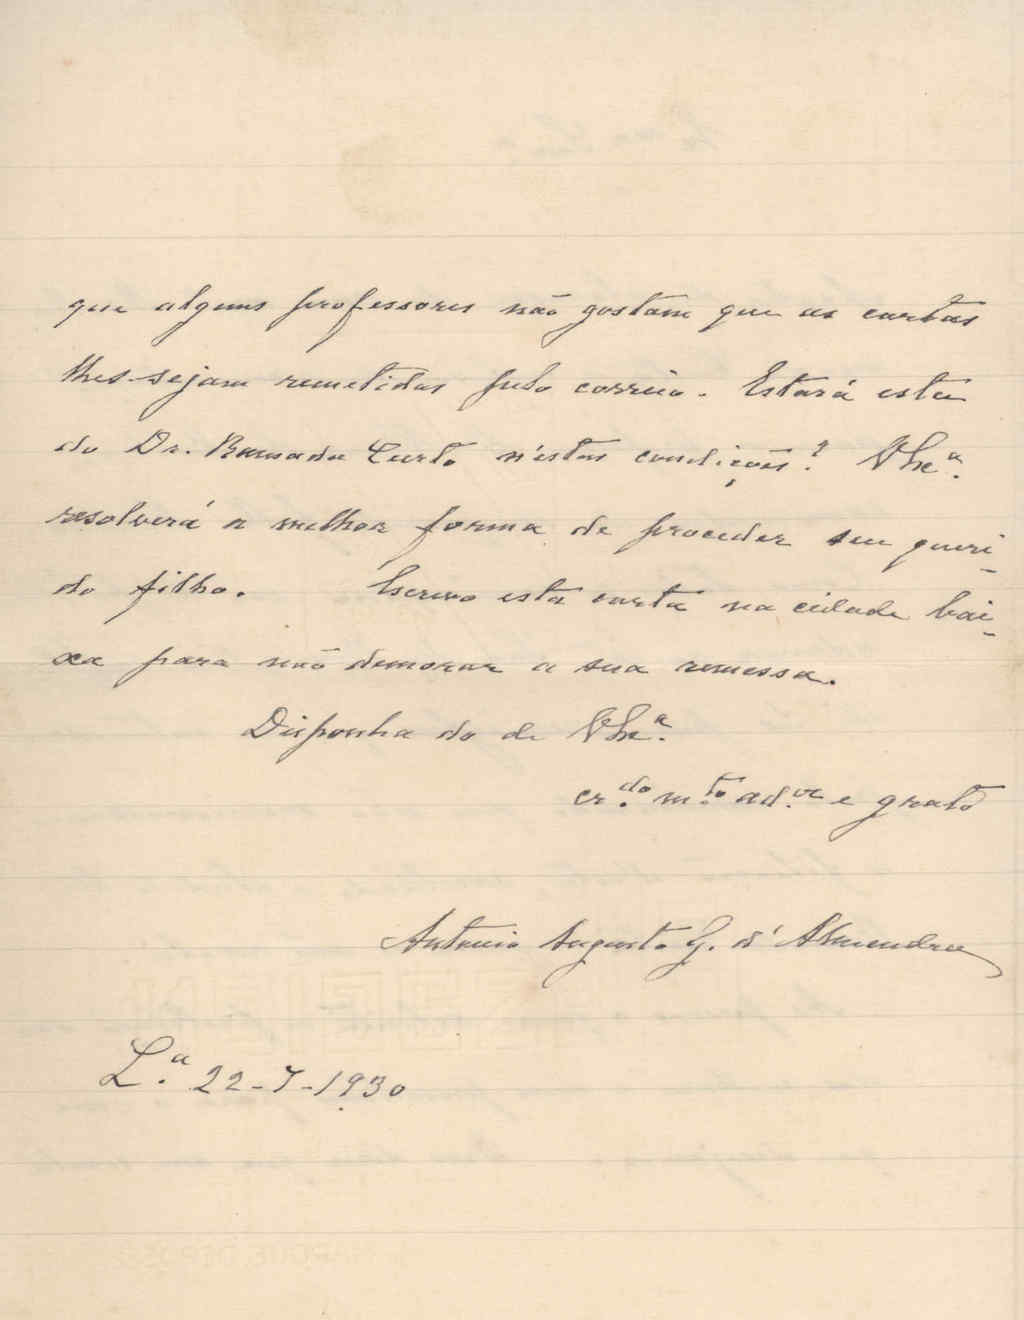 que alguns professores não gostam que as cartas
lhes-sejam remetidas pelo correio. Estará esta
do Dr. Ramada Curto n'estas condições? V Exª.
resolverá a melhor forma de proceder seu queri-
do filho. Escrevo esta carta na cidade bai-
xa para não demorar a sua remessa.
Disponha do de V Exª.
cr.do m.to ad.or e grato
Antonio Augusto G. d'Almendra
L.a 22-7-1930